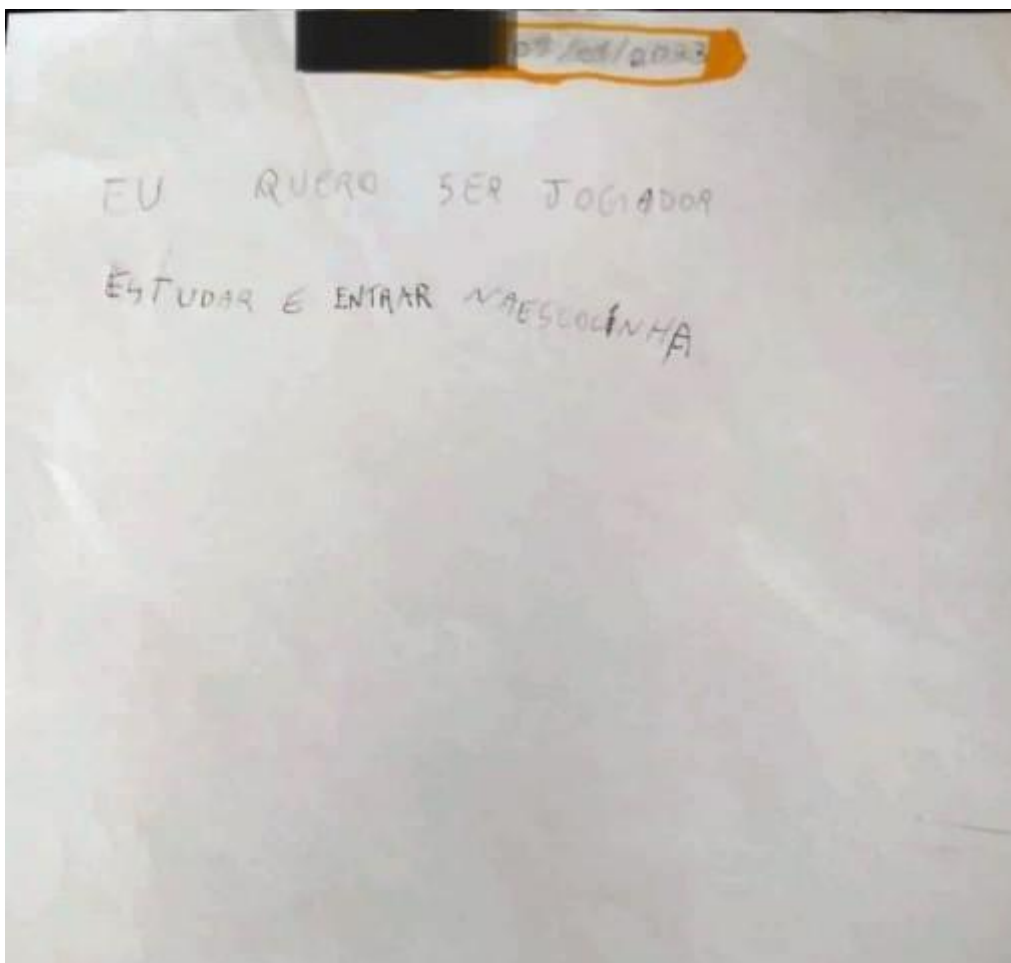 EU QUERO SER JOGADOR
ESTUDAR E ENTRAR NAESCOLINHA